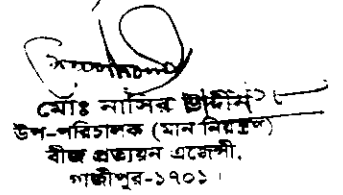 মোঃ নাসির উদ্দীন
উপ-পরিচালক (মান নিয়ন্ত্রণ)
বীজ প্রত্যয়ন এজেন্সী,
গাজীপুর-১৭০১।